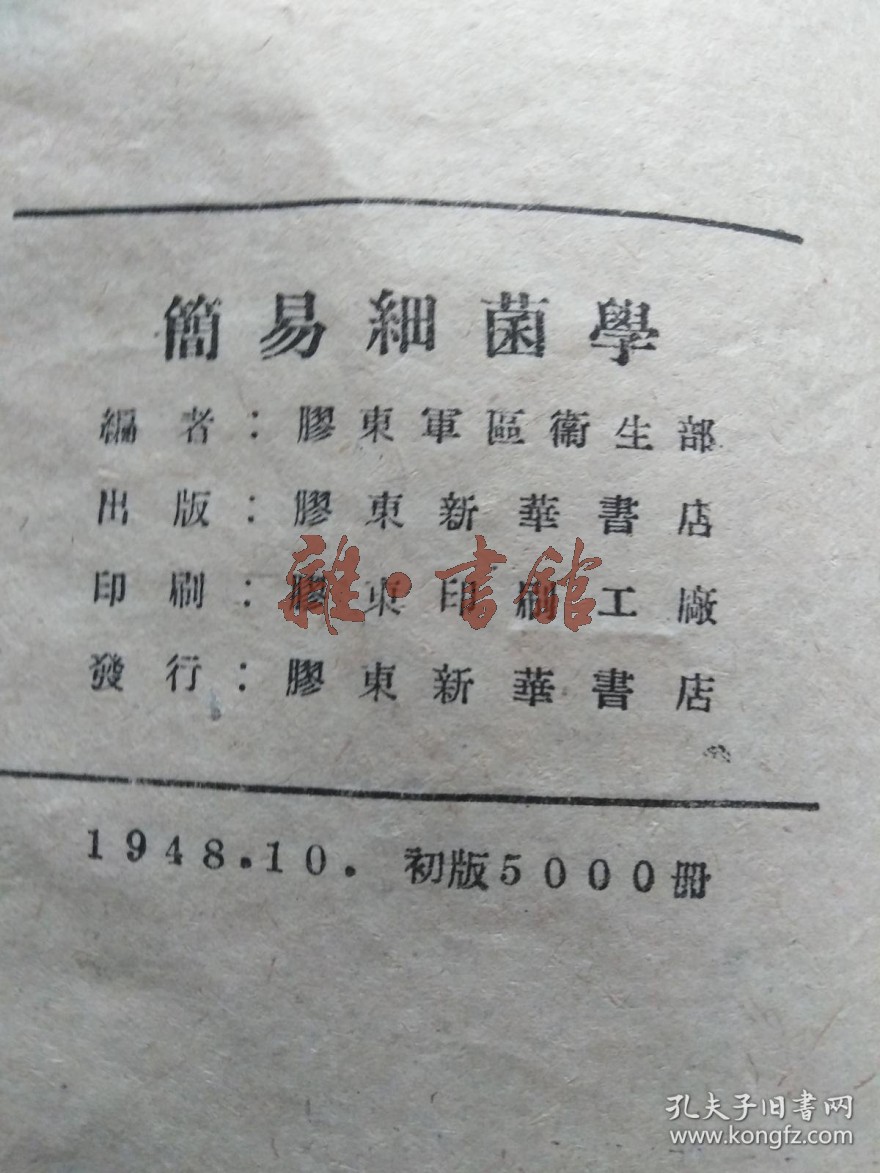 簡易細菌學
編者：膠東軍區衞生部
出版：膠東新華書店
印刷：膠東印刷工廠
發行：膠東新華書店
1948.10. 初版5000册
雜·書館
孔夫子旧书网
www.kongfz.com